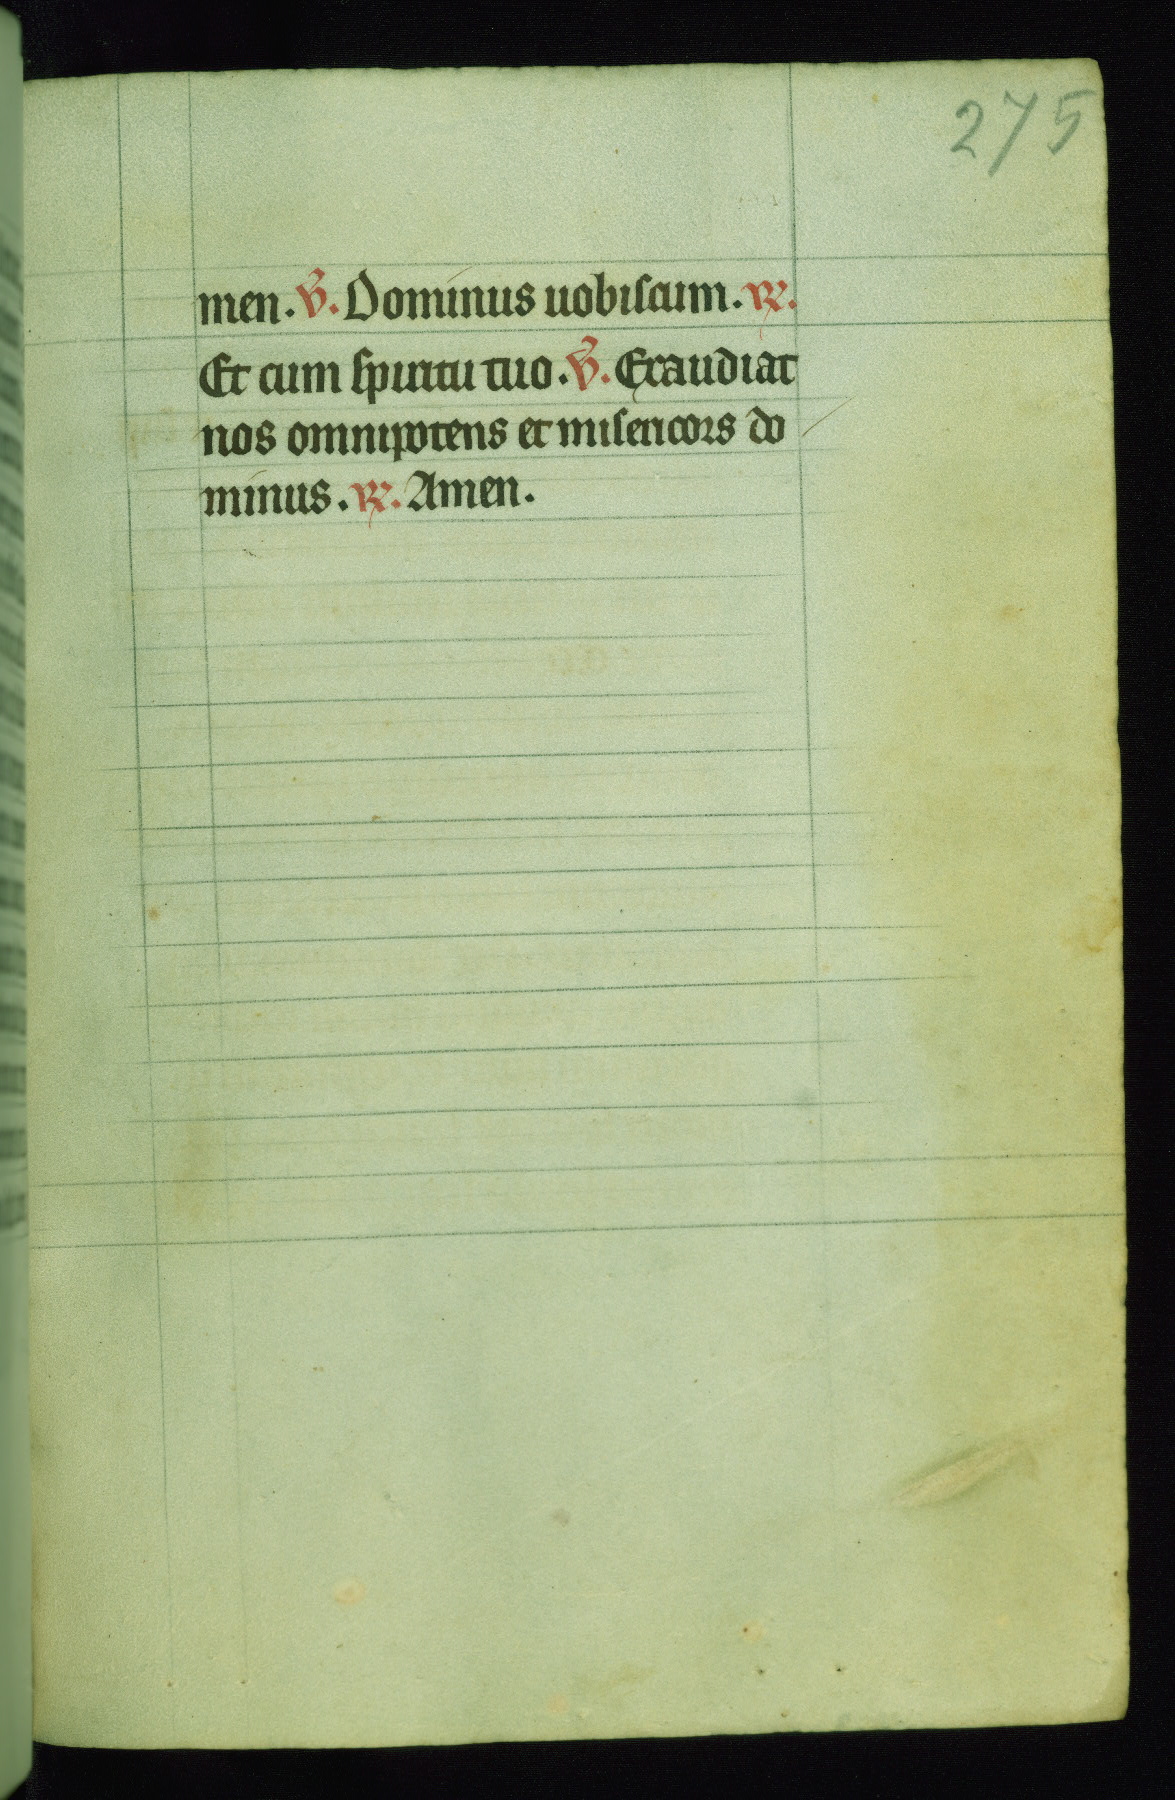 275
men. ℣. Dominus uobiscum. ℟.
Et cum spiritu tuo. ℣. Exaudiat
nos omnipotens et misericors do
minus. ℟. Amen.